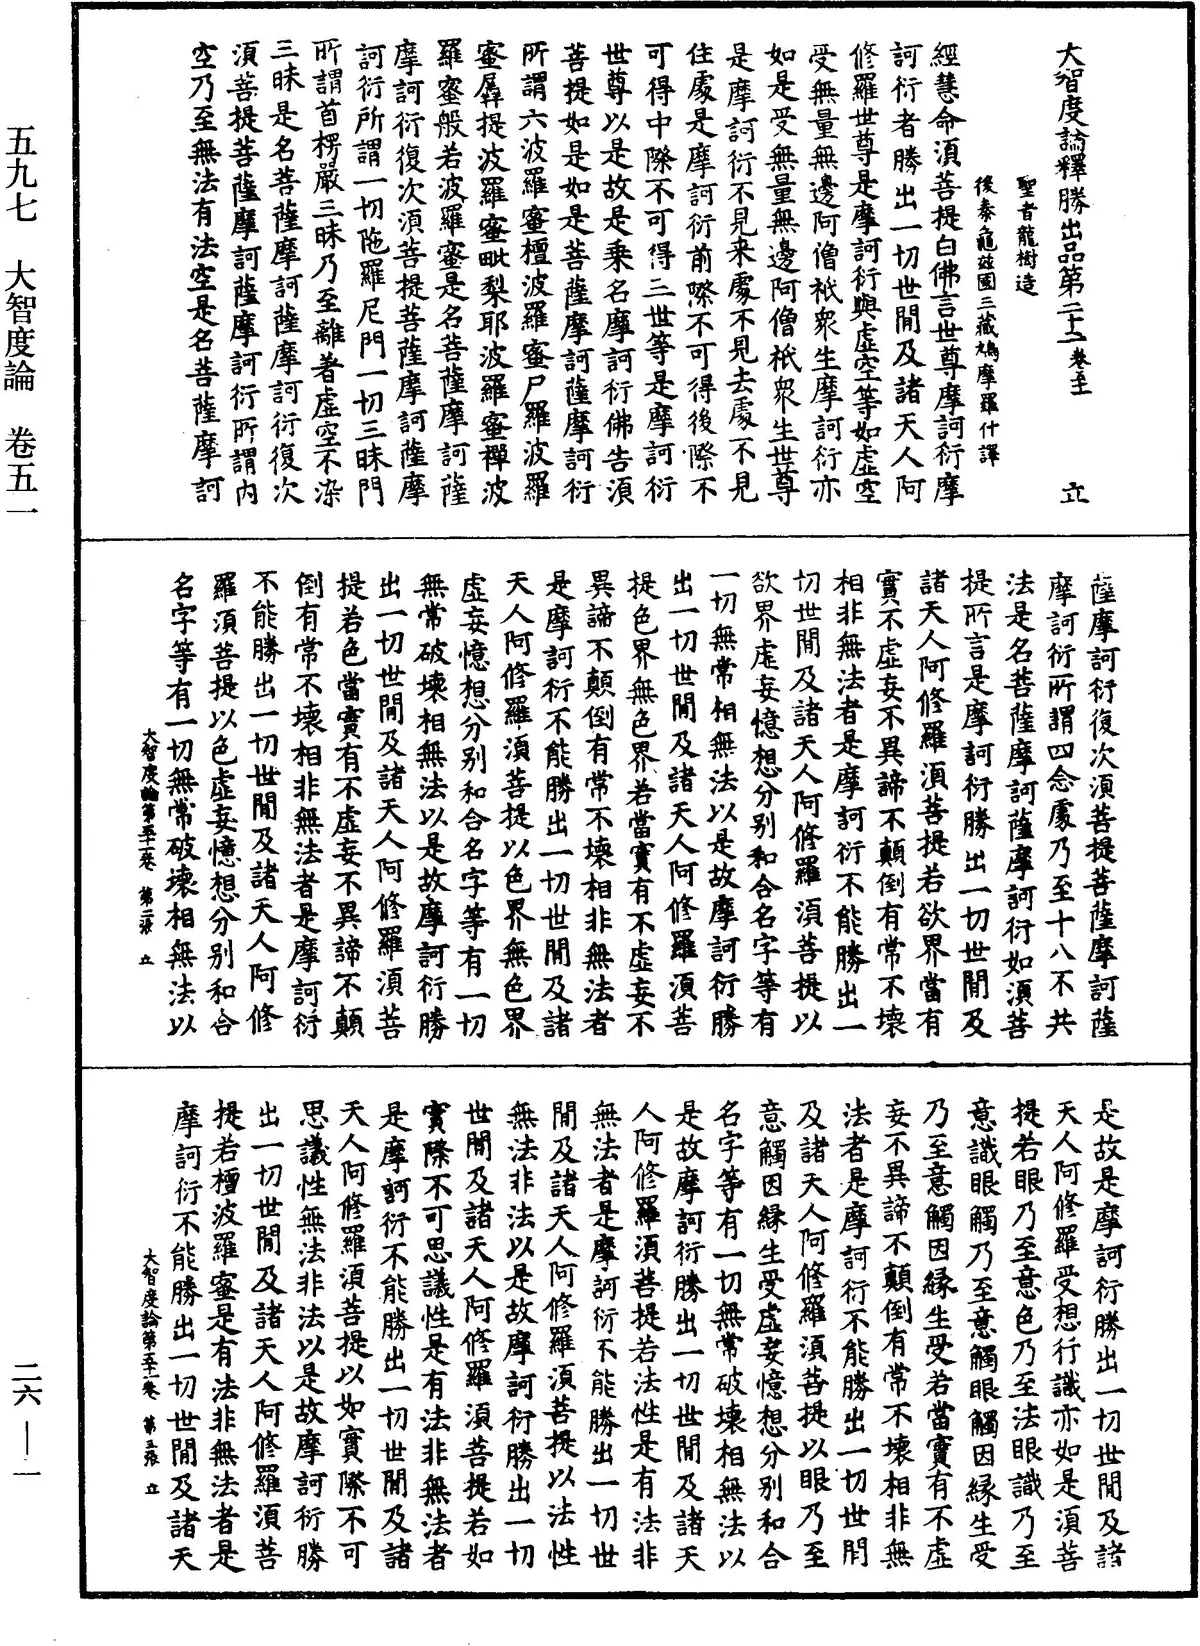 大智度論釋勝出品第二十二卷五十一 立
聖者龍樹造
後秦龜兹國三藏鳩摩羅什譯
經慧命須菩提白佛言世尊摩訶衍摩
訶衍者勝出一切世間及諸天人阿
修羅世尊是摩訶衍與虛空等如虛空
受無量無邊阿僧祇衆生摩訶衍亦
如是受無量無邊阿僧祇衆生世尊
是摩訶衍不見来處不見去處不見
住處是摩訶衍前際不可得後際不
可得中際不可得三世等是摩訶衍
世尊以是故是乗名摩訶衍佛告須
菩提如是如是菩薩摩訶薩摩訶衍
所謂六波羅蜜檀波羅蜜尸羅波羅
蜜羼提波羅蜜毗梨耶波羅蜜禪波
羅蜜般若波羅蜜是名菩薩摩訶薩
摩訶衍復次須菩提菩薩摩訶薩摩
訶衍所謂一切陁羅尼門一切三昧門
所謂首楞嚴三昧乃至離著虛空不染
三昧是名菩薩摩訶薩摩訶衍復次
須菩提菩薩摩訶薩摩訶衍所謂內
空乃至無法有法空是名菩薩摩訶
薩摩訶衍復次須菩提菩薩摩訶薩
摩訶衍所謂四念處乃至十八不共
法是名菩薩摩訶薩摩訶衍如須菩
提所言是摩訶衍勝出一切世間及
諸天人阿修羅須菩提若欲界當有
實不虛妄不異諦不顛倒有常不壞
相非無法者是摩訶衍不能勝出一
切世間及諸天人阿修羅須菩提以
欲界虛妄憶想分別和合名字等有
一切無常相無法以是故摩訶衍勝
出一切世間及諸天人阿修羅須菩
提色界無色界若當實有不虛妄不
異諦不顛倒有常不壞相非無法者
是摩訶衍不能勝出一切世間及諸
天人阿修羅須菩提以色界無色界
虛妄憶想分別和合名字等有一切
無常破壞相無法以是故摩訶衍勝
出一切世間及諸天人阿修羅須菩
提若色當實有不虛妄不異諦不顛
倒有常不壞相非無法者是摩訶衍
不能勝出一切世間及諸天人阿修
羅須菩提以色虛妄憶想分別和合
名字等有一切無常破壞相無法以
大智度論第五十一卷 第二張 立
是故是摩訶衍勝出一切世間及諸
天人阿修羅受想行識亦如是須菩
提若眼乃至意色乃至法眼識乃至
意識眼觸乃至意觸眼觸因緣生受
乃至意觸因緣生受若當實有不虛
妄不異諦不顛倒有常不壞相非無
法者是摩訶衍不能勝出一切世間
及諸天人阿修羅須菩提以眼乃至
意觸因緣生受虛妄憶想分別和合
名字等有一切無常破壞相無法以
是故摩訶衍勝出一切世間及諸天
人阿修羅須菩提若法性是有法非
無法者是摩訶衍不能勝出一切世
間及諸天人阿修羅須菩提以法性
無法非法以是故摩訶衍勝出一切
世間及諸天人阿修羅須菩提若如
實際不可思議性是有法非無法者
是摩訶衍不能勝出一切世間及諸
天人阿修羅須菩提以如實際不可
思議性無法非法以是故摩訶衍勝
出一切世間及諸天人阿修羅須菩
提若檀波羅蜜是有法非無法者是
摩訶衍不能勝出一切世間及諸天
大智度論第五十一卷 第三張 立
五九七 大智度論 卷五一
二六—一